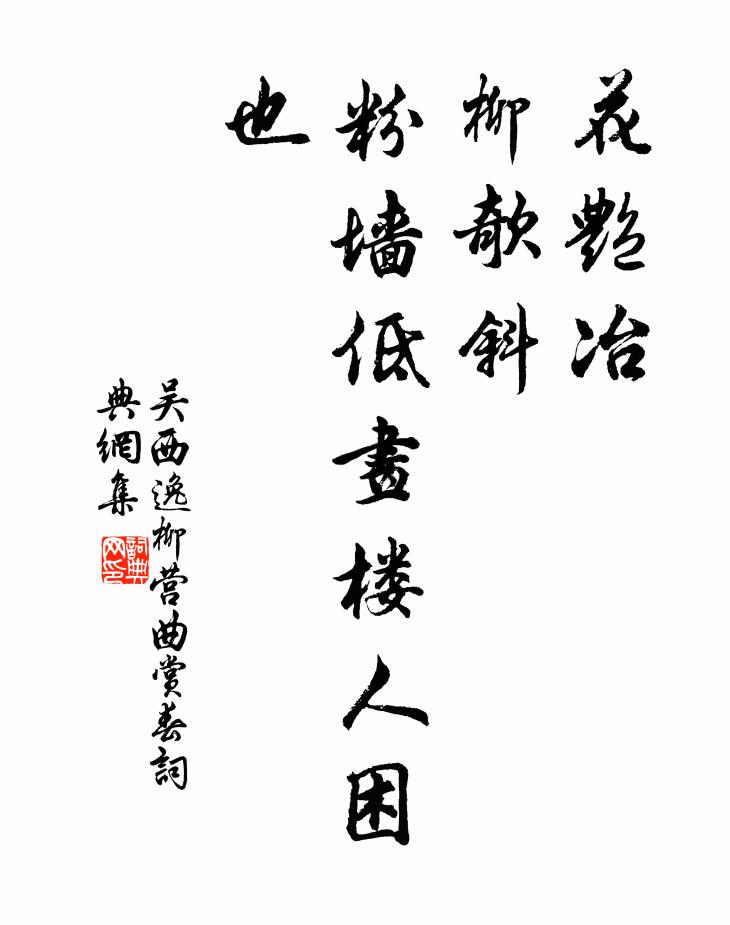 花艷冶
柳欹斜
粉墙低畫楼人困
也
吴西逸柳营曲赏春詞
典網集
詞典
网印